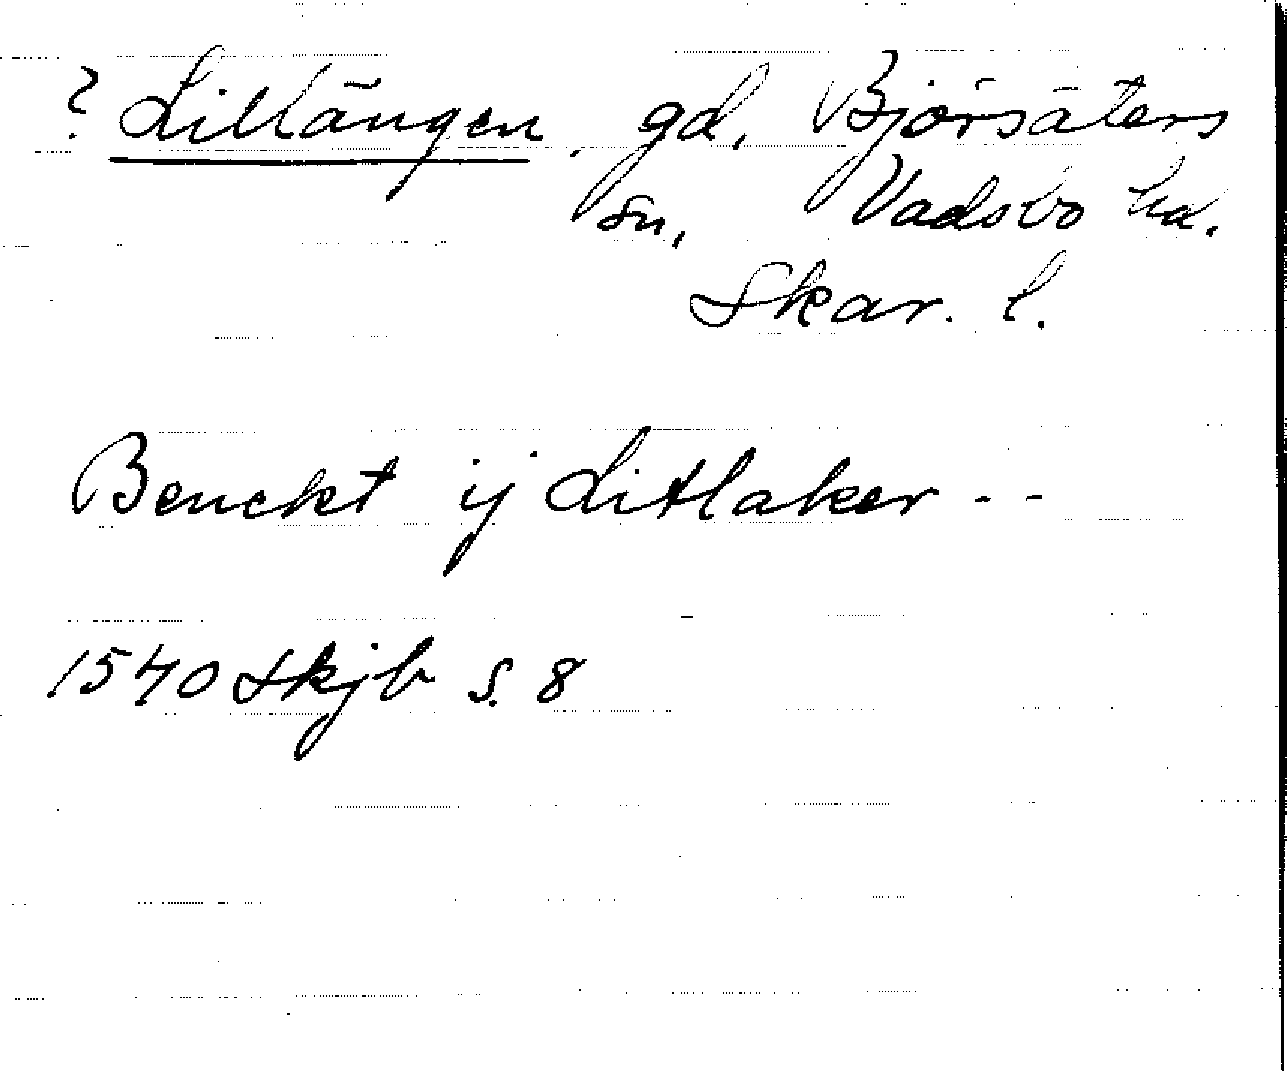 ? Lillängen, gd, Björsäters
sn, Vadsbo hd.
Skar. l.
Benckt ij Litlaker - -
1540 Skjb s. 8